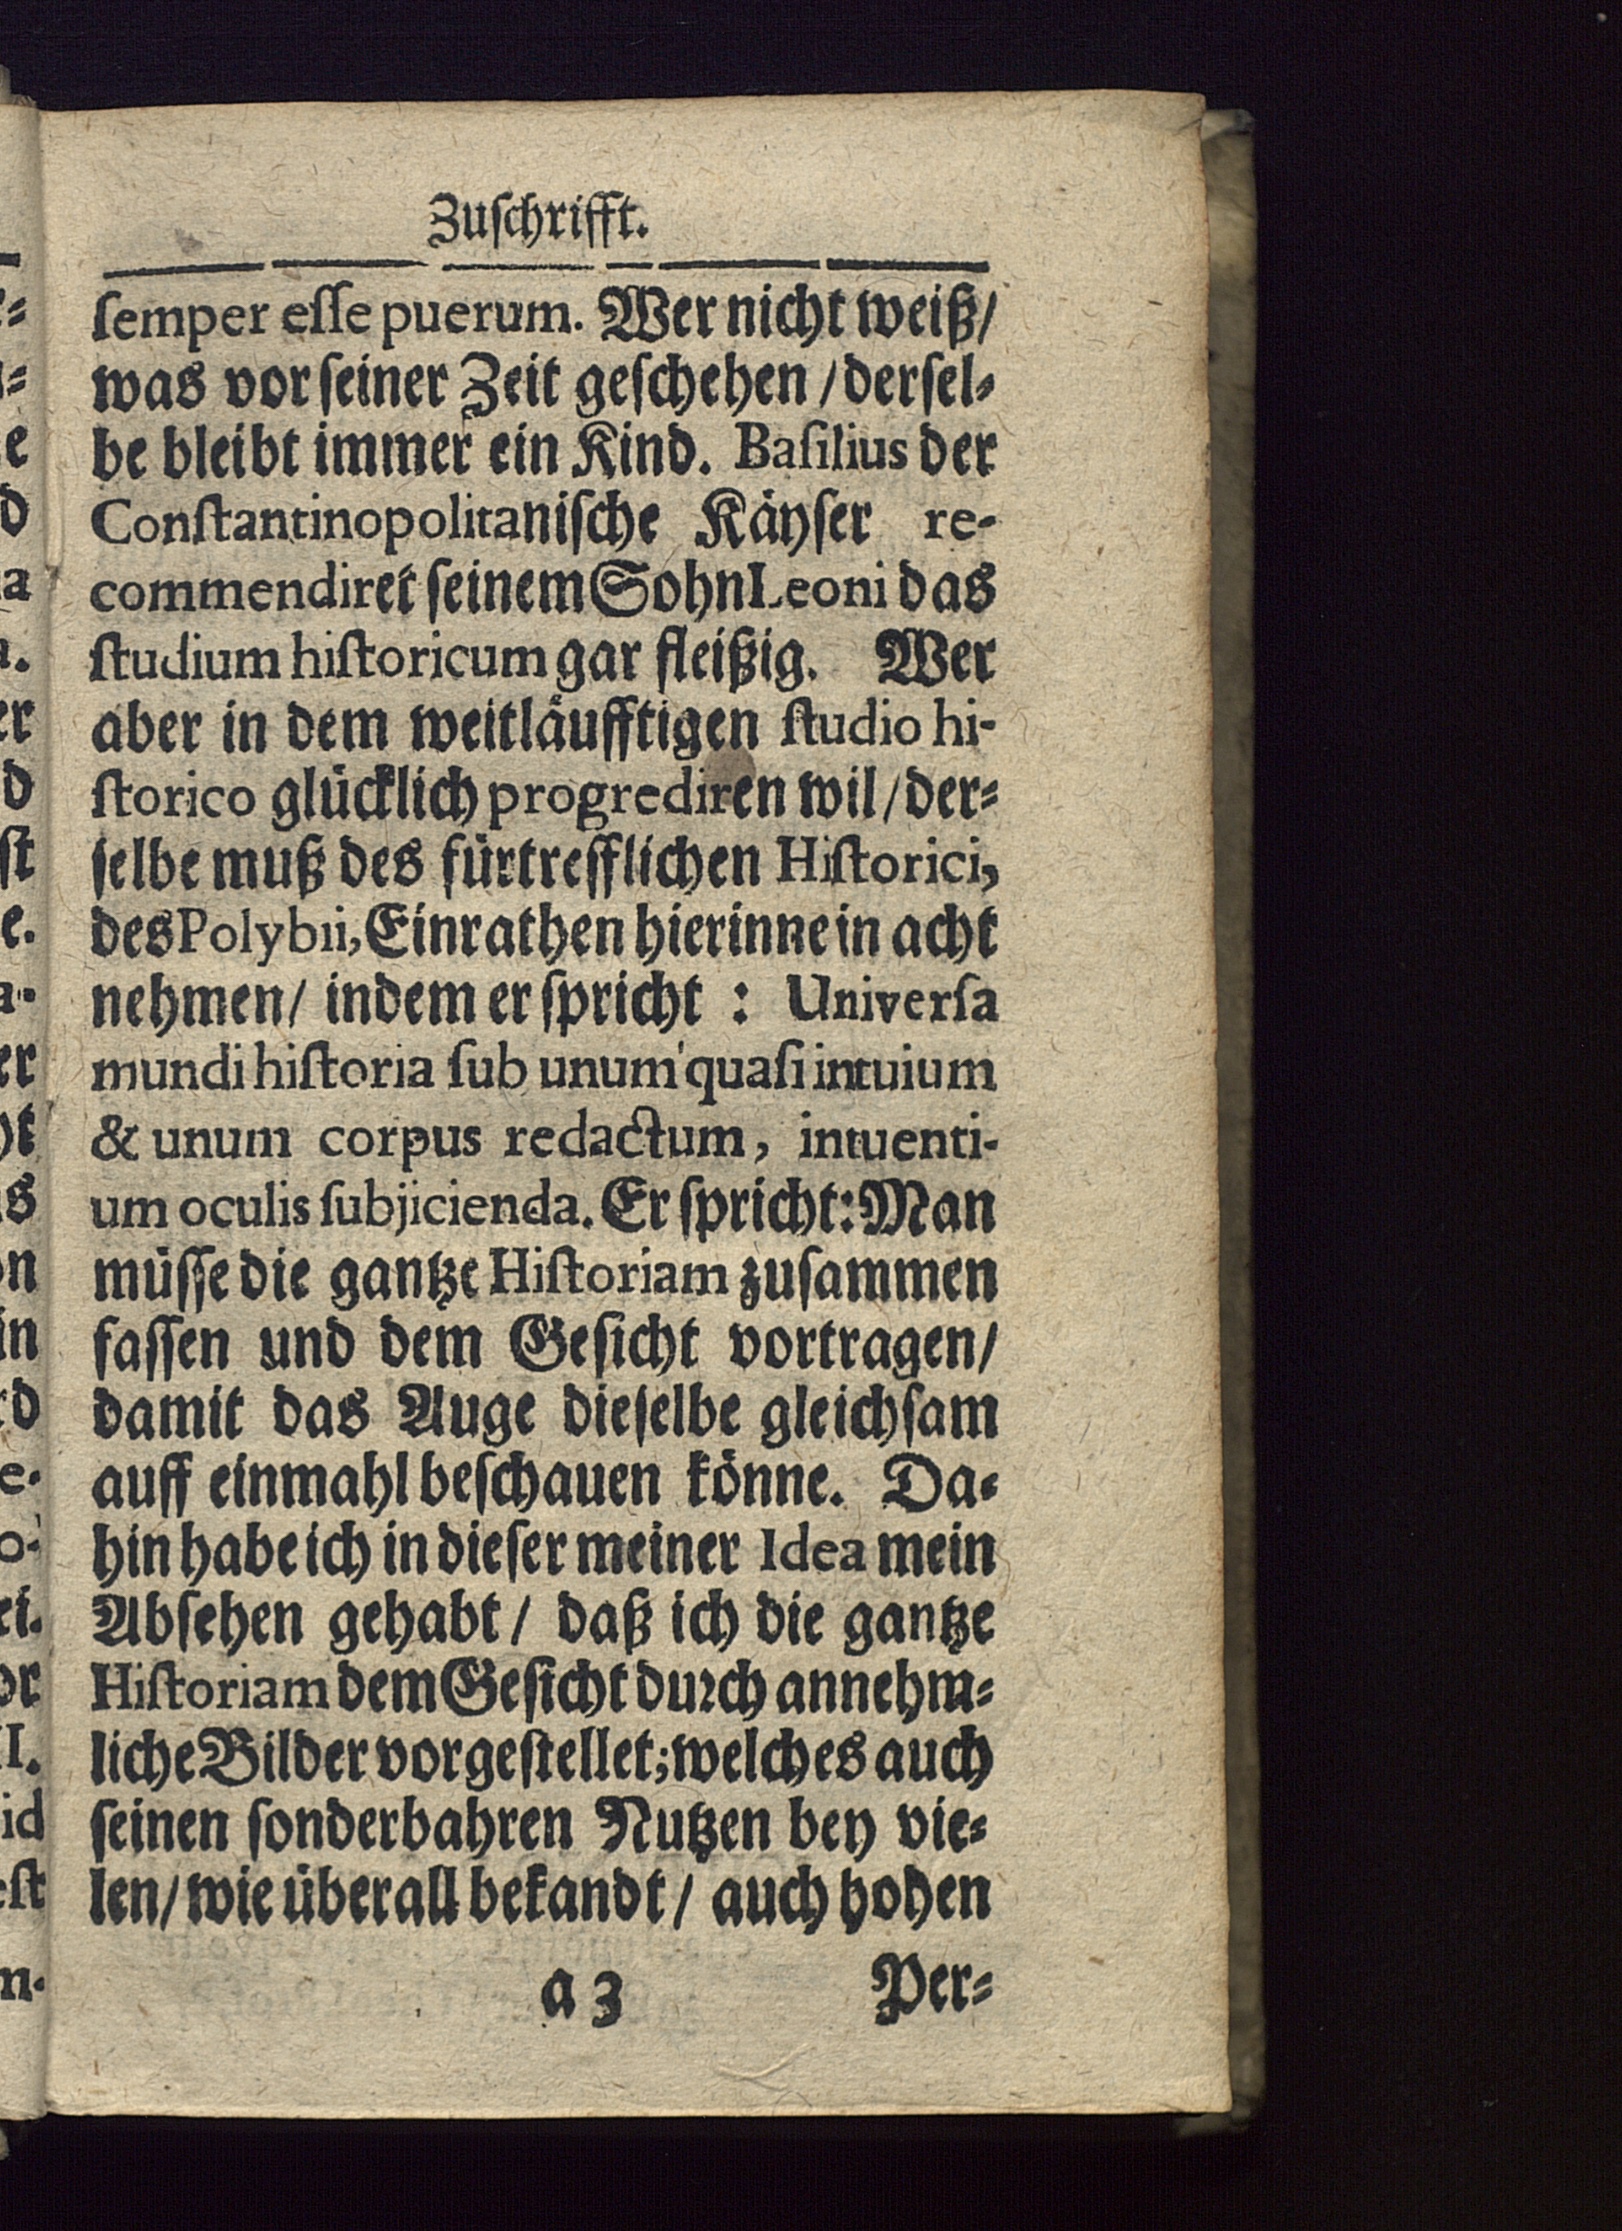 Zuſchrifft.
ſemper eſſe puerum. Wer nicht weiß/
was vor ſeiner Zeit geſchehen / derſel-
be bleibt immer ein Kind. Baſilius der
Conſtantinopolitaniſche Käyſer re-
commendiret ſeinem Sohn Leoni das
ſtudium hiſtoricum gar fleißig. Wer
aber in dem weitläufftigen ſtudio hi-
ſtorico glücklich progrediren wil / der-
ſelbe muß des fürtrefflichen Hiſtorici,
des Polybii, Einrathen hierinne in acht
nehmen / indem er ſpricht : Univerſa
mundi hiſtoria ſub unum quaſi intuium
& unum corpus redactum, intuenti-
um oculis ſubjicienda. Er ſpricht: Man
müſſe die gantze Hiſtoriam zuſammen
faſſen und dem Geſicht vortragen/
damit das Auge dieſelbe gleichſam
auff einmahl beſchauen könne. Da-
hin habe ich in dieſer meiner Idea mein
Abſehen gehabt / daß ich die gantze
Hiſtoriam dem Geſicht durch annehm-
liche Bilder vorgeſtellet; welches auch
ſeinen ſonderbahren Nutzen bey vie-
len / wie überall bekandt / auch hohen
a 3 Per-